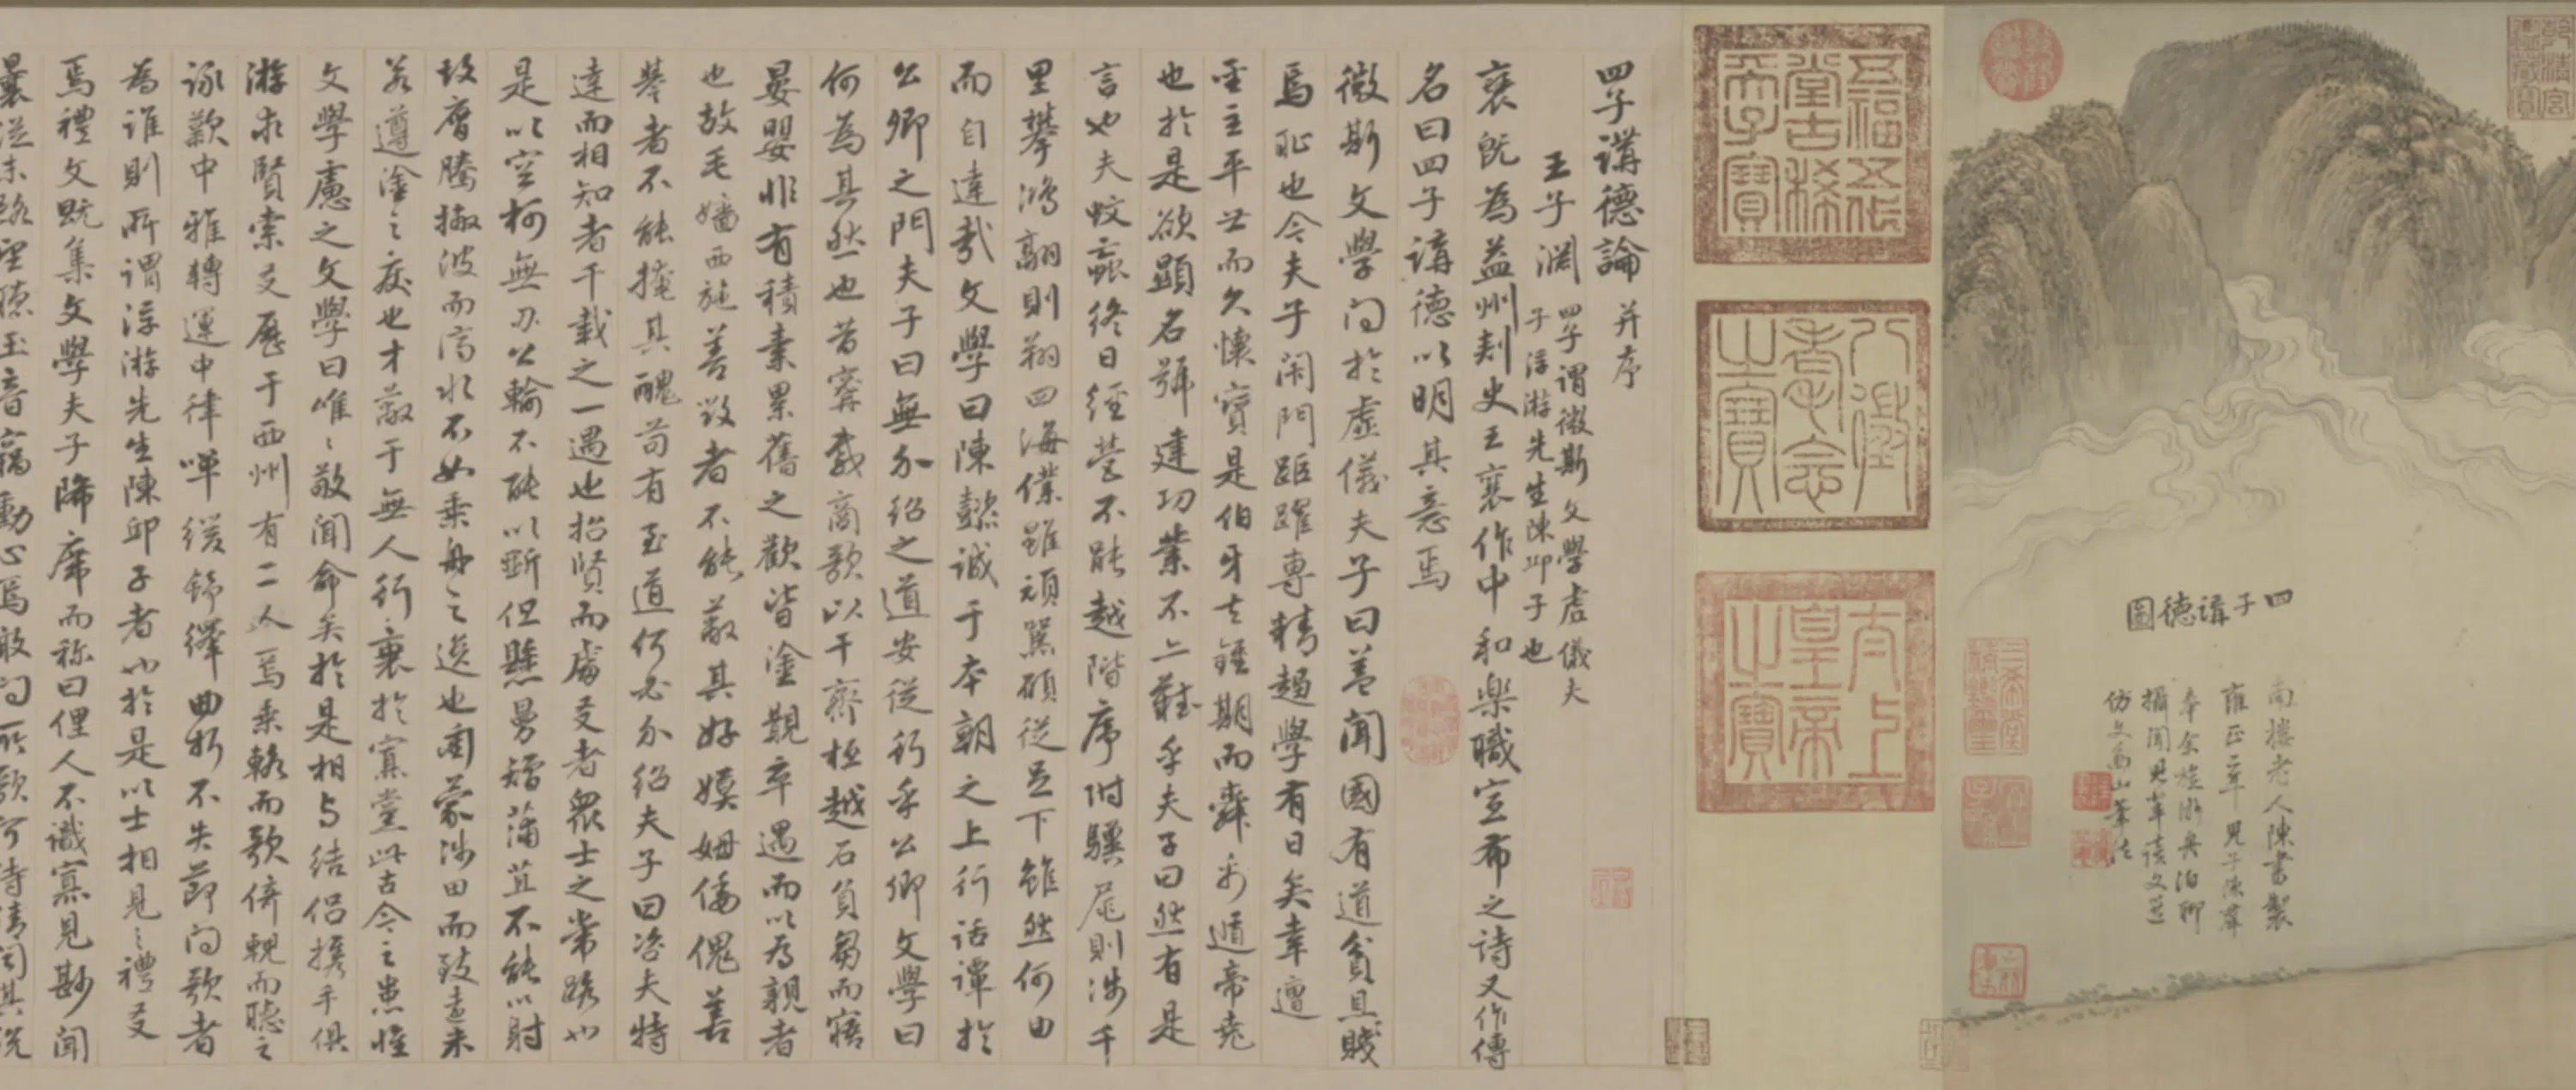 四子講德圖
南樓老人陳書製
五福五代堂古稀天子寶
八徵耄念之寶
太上皇帝之寶
四子講德論 并序
王子淵 四子謂微斯文學虛儀夫
子浮游先生陳邱子也
襃既為益州刺史王襃作中和樂職宣布之詩又作傳
名曰四子講德以明其意焉
微斯文學問於虛儀夫子曰蓋聞國有道貧且賤
焉恥也今夫子閑門距躍專精趨學有日矣幸遭
聖主平世而久懷寶是伯牙去鍾期而舜禹遁帝堯
也於是欲顯名號建功業不亦難乎夫子曰然有是
言也夫蚊蝱終日經營不能越階序附驥尾則涉千
里攀鴻翮則翔四海僕雖頑駑願從足下雖然何由
而自達哉文學曰陳懿誠于本朝之上行話譚於
公卿之門夫子曰無介紹之道安從行乎公卿文學曰
何為其然也昔甯戚商歌以干齊桓越石負芻而寤
晏嬰非有積素累舊之歡皆塗覯卒遇而以為親者
也故毛嬙西施善毀者不能蔽其好嫫姆倭傀善
譽者不能掩其醜苟有至道何必介紹夫子曰咨夫特
達而相知者千載之一遇也招賢而處友者眾士之常路也
是以空柯無刃公輸不能以斲但懸曼矰蒲苴不能以射
故膺騰撇波而濟水不如乘舟之逸也衝蒙涉田而致遠未
若遵塗之疾也才蔽于無人行衰於寡黨此古今之患惟
文學慮之文學曰唯唯敬聞命矣於是相與結侶攜手俱
游求賢索友歷于西州有二人焉乘輅而歌倚輗而聽之
詠歎中雅轉運中律嘽緩舒繹曲折不失節問歌者
為誰則所謂浮游先生陳邱子者也於是以士相見之禮友
焉禮文既集文學夫子降席而稱曰俚人不識寡見尠聞
曩從末路望聽玉音竊動心焉敢問所歌何詩請聞其說